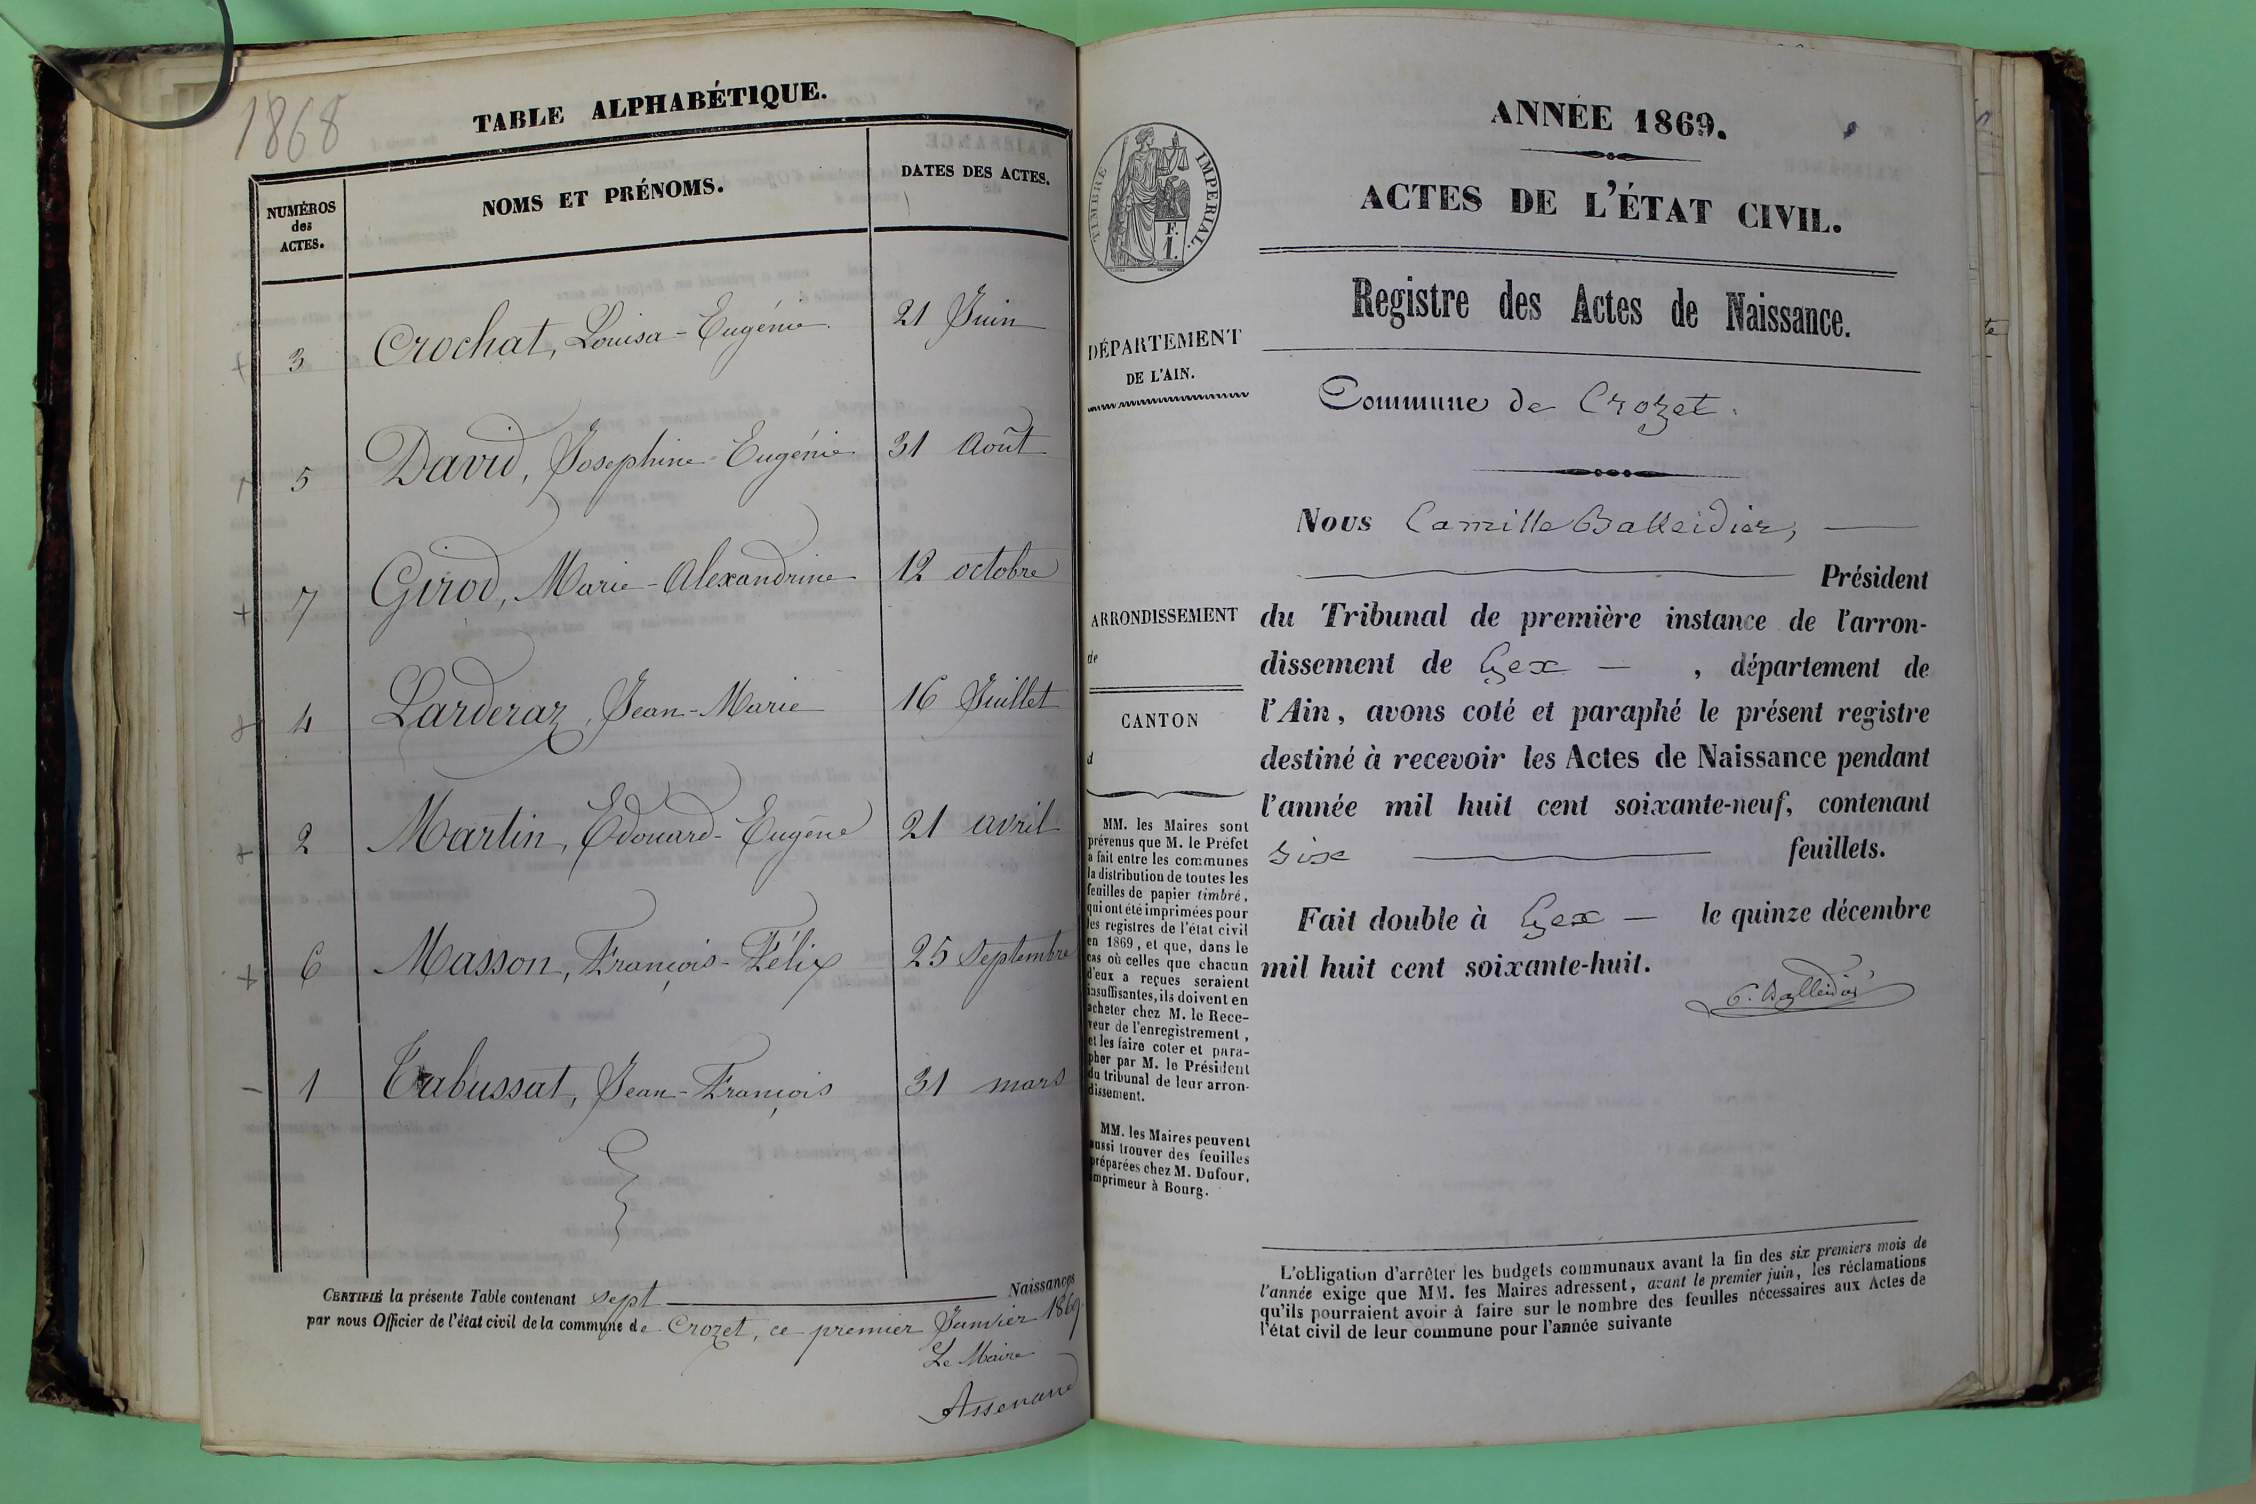 1868
TABLE ALPHABÉTIQUE.
NUMÉROS
des
ACTES.
NOMS ET PRÉNOMS.
DATES DES ACTES.
3 Crochat, Louisa-Eugénie. 21 Juin
5 David, Josephine-Eugénie 31 Août
7 Girod, Marie-Alexandrine 12 octobre
4 Larderaz, Jean-Marie 16 Juillet
2 Martin, Edouard-Eugène 21 avril
6 Masson, François-Félix 25 septembre
1 Tabussat, Jean-François 31 mars
CERTIFIÉ la présente Table contenant sept Naissances
par nous Officier de l'état civil de la commune de Crozet, ce premier Janvier 1869.
Le Maire
TIMBRE IMPÉRIAL.
F.
1.
DÉPARTEMENT
DE L'AIN.
ARRONDISSEMENT
de
CANTON
d
MM. les Maires sont
prévenus que M. le Préfet
a fait entre les communes
la distribution de toutes les
feuilles de papier timbré,
qui ont été imprimées pour
les registres de l'état civil
en 1869, et que, dans le
cas où celles que chacun
d'eux a reçues seraient
insuffisantes, ils doivent en
acheter chez M. le Rece-
veur de l'enregistrement,
et les faire coter et para-
pher par M. le Président
du tribunal de leur arron-
dissement.
MM. les Maires peuvent
aussi trouver des feuilles
préparées chez M. Dufour,
imprimeur à Bourg.
ANNÉE 1869.
ACTES DE L'ÉTAT CIVIL.
Registre des Actes de Naissance.
Commune de Crozet.
Nous Camille Balleidier,
Président
du Tribunal de première instance de l'arron-
dissement de Gex , département de
l'Ain, avons coté et paraphé le présent registre
destiné à recevoir les Actes de Naissance pendant
l'année mil huit cent soixante-neuf, contenant
six feuillets.
Fait double à Gex le quinze décembre
mil huit cent soixante-huit.
C. Balleidier
L'obligation d'arrêter les budgets communaux avant la fin des six premiers mois de
l'année exige que MM. les Maires adressent, avant le premier juin, les réclamations
qu'ils pourraient avoir à faire sur le nombre des feuilles nécessaires aux Actes de
l'état civil de leur commune pour l'année suivante